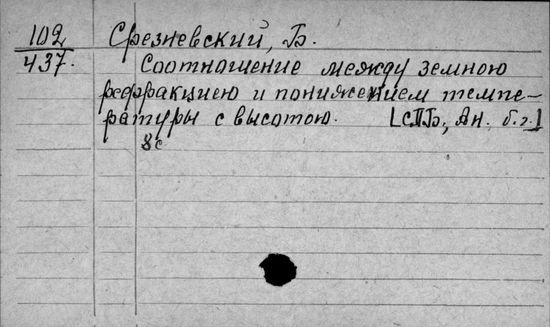 102 Срезневский, Б.
437. Соотношение между земною
рефракциею и понижением темпе-
ратуры с высотою. [СПБ, Ан. б.г.]
8с